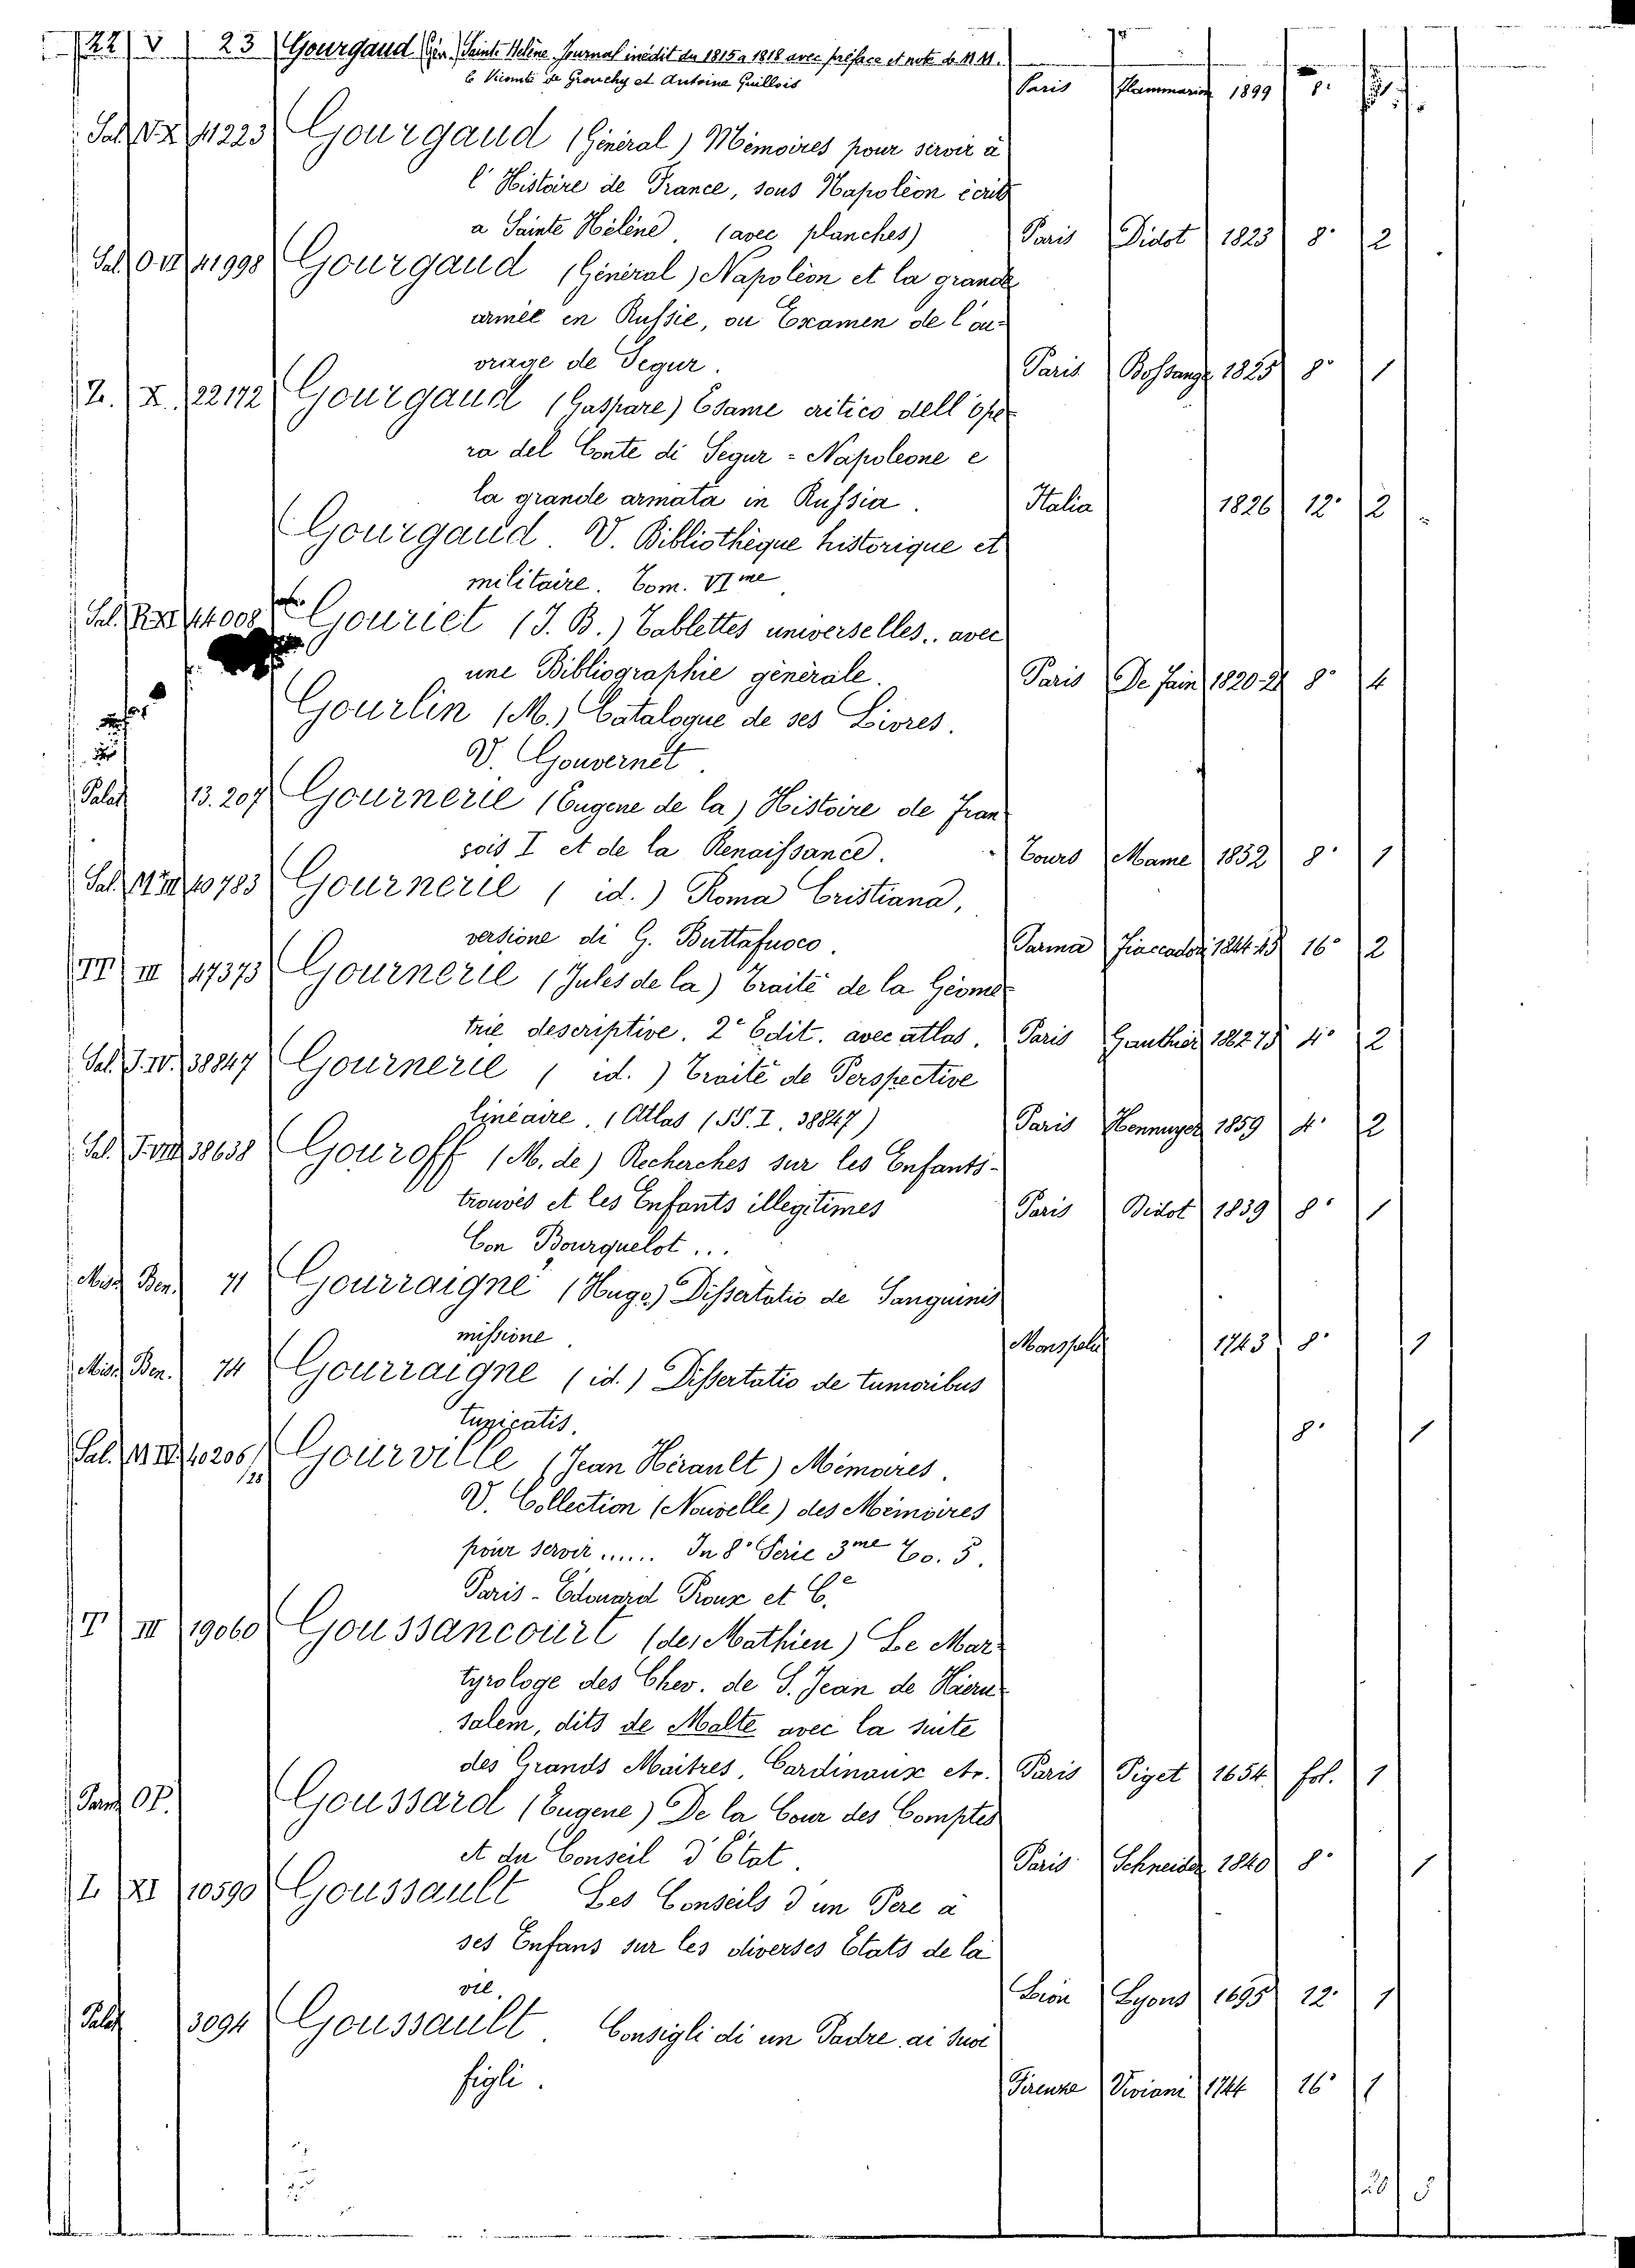 22 V 23 Gourgaud (Gén.) Sainte Helène. Journal inédit du 1815 a 1818 avec préface et note de M.M.
le Vicomte de Grouchy et Antoine Guillois Paris Flammarion 1899 8.
Sal. 41223 Gourgaud (Général) Mémoires pour servir à
l'Histoire de France, sous Napoléon écrits
a Sainte Hélène. (avec planches) Paris Didot 1823 8° 2
Sal. 41998 Gourgaud (Général) Napoléon et la grande
armée en Russie, ou Examen de l'ou-
vrage de Segur. Paris Bossange 1825 8° 1
Z. X. 22172 Gourgaud (Gaspare) Esame critico dell'ope-
ra del Conte di Segur = Napoleone e
la grande armata in Russia. Italia 1826 12° 2
Gourgaud. V. Bibliothèque historique et
militaire. Tom. VI me
Sal. 44008 Gouriet (J. B.) Tablettes universelles.. avec
une Bibliographie générale. Paris De Jain 1820-21 8° 4
Gourlin (M.) Catalogue de ses Livres.
V. Gouvernet.
Palat 13.207 Gournerie (Eugene de la) Histoire de Fran
çois I et de la Renaissance. Tours Mame 1852 8° 1
Sal. 40783 Gournerie (id.) Roma Cristiana,
versione di G. Buttafuoco. Parma Fiaccadori 1844-45 16° 2
TT III 47373 Gournerie (Jules de la) Traité de la Géome-
trie descriptive. 2e Edit. avec atlas. Paris Gauthier 1862 75 4° 2
Sal. J. IV. 38847 Gournerie (id.) Traité de Perspective
linéaire. (Atlas (SS. I. 38847) Paris Hennuyer 1859 4° 2
Sal. 38638 Gouroff (M. de) Recherches sur les Enfants-
trouvés et les Enfants illegitimes Paris Didot 1839 8° 1
Con Bourquelot...
Misc. Ben. 71 Gourraigne (Hugo) Dissertatio de Sanguinis
missione. Monspelii 1743 8° 1
Misc. Ben. 74 Gourraigne (id.) Dissertatio de tumoribus
8° 1
Sal. 40206/28 Gourville (Jean Hérault) Mémoires.
V. Collection (Nouvelle) des Mémoires
pour servir...... In 8° Serie 3me To. 5.
Paris - Edouard Proux et Ce
T III 19060 Goussancourt (de, Mathieu) Le Mar-
tyrologe des Chev. de S. Jean de Hieru-
salem, dits de Malte avec la suite
des Grands Maitres, Cardinaux etc. Paris Piget 1654 fol. 1
OP. Goussard (Eugene) De la Cour des Comptes
et du Conseil d'Etat. Paris Schneider 1840 8° 1
L XI 10590 Goussault Les Conseils d'un Pere à
ses Enfans sur les diverses Etats de la
vie. Lion Lyons 1695 12° 1
Palat 3094 Goussault. Consigli di un Padre ai suoi
figli. Firenze Viviani 1744 16° 1
26 5